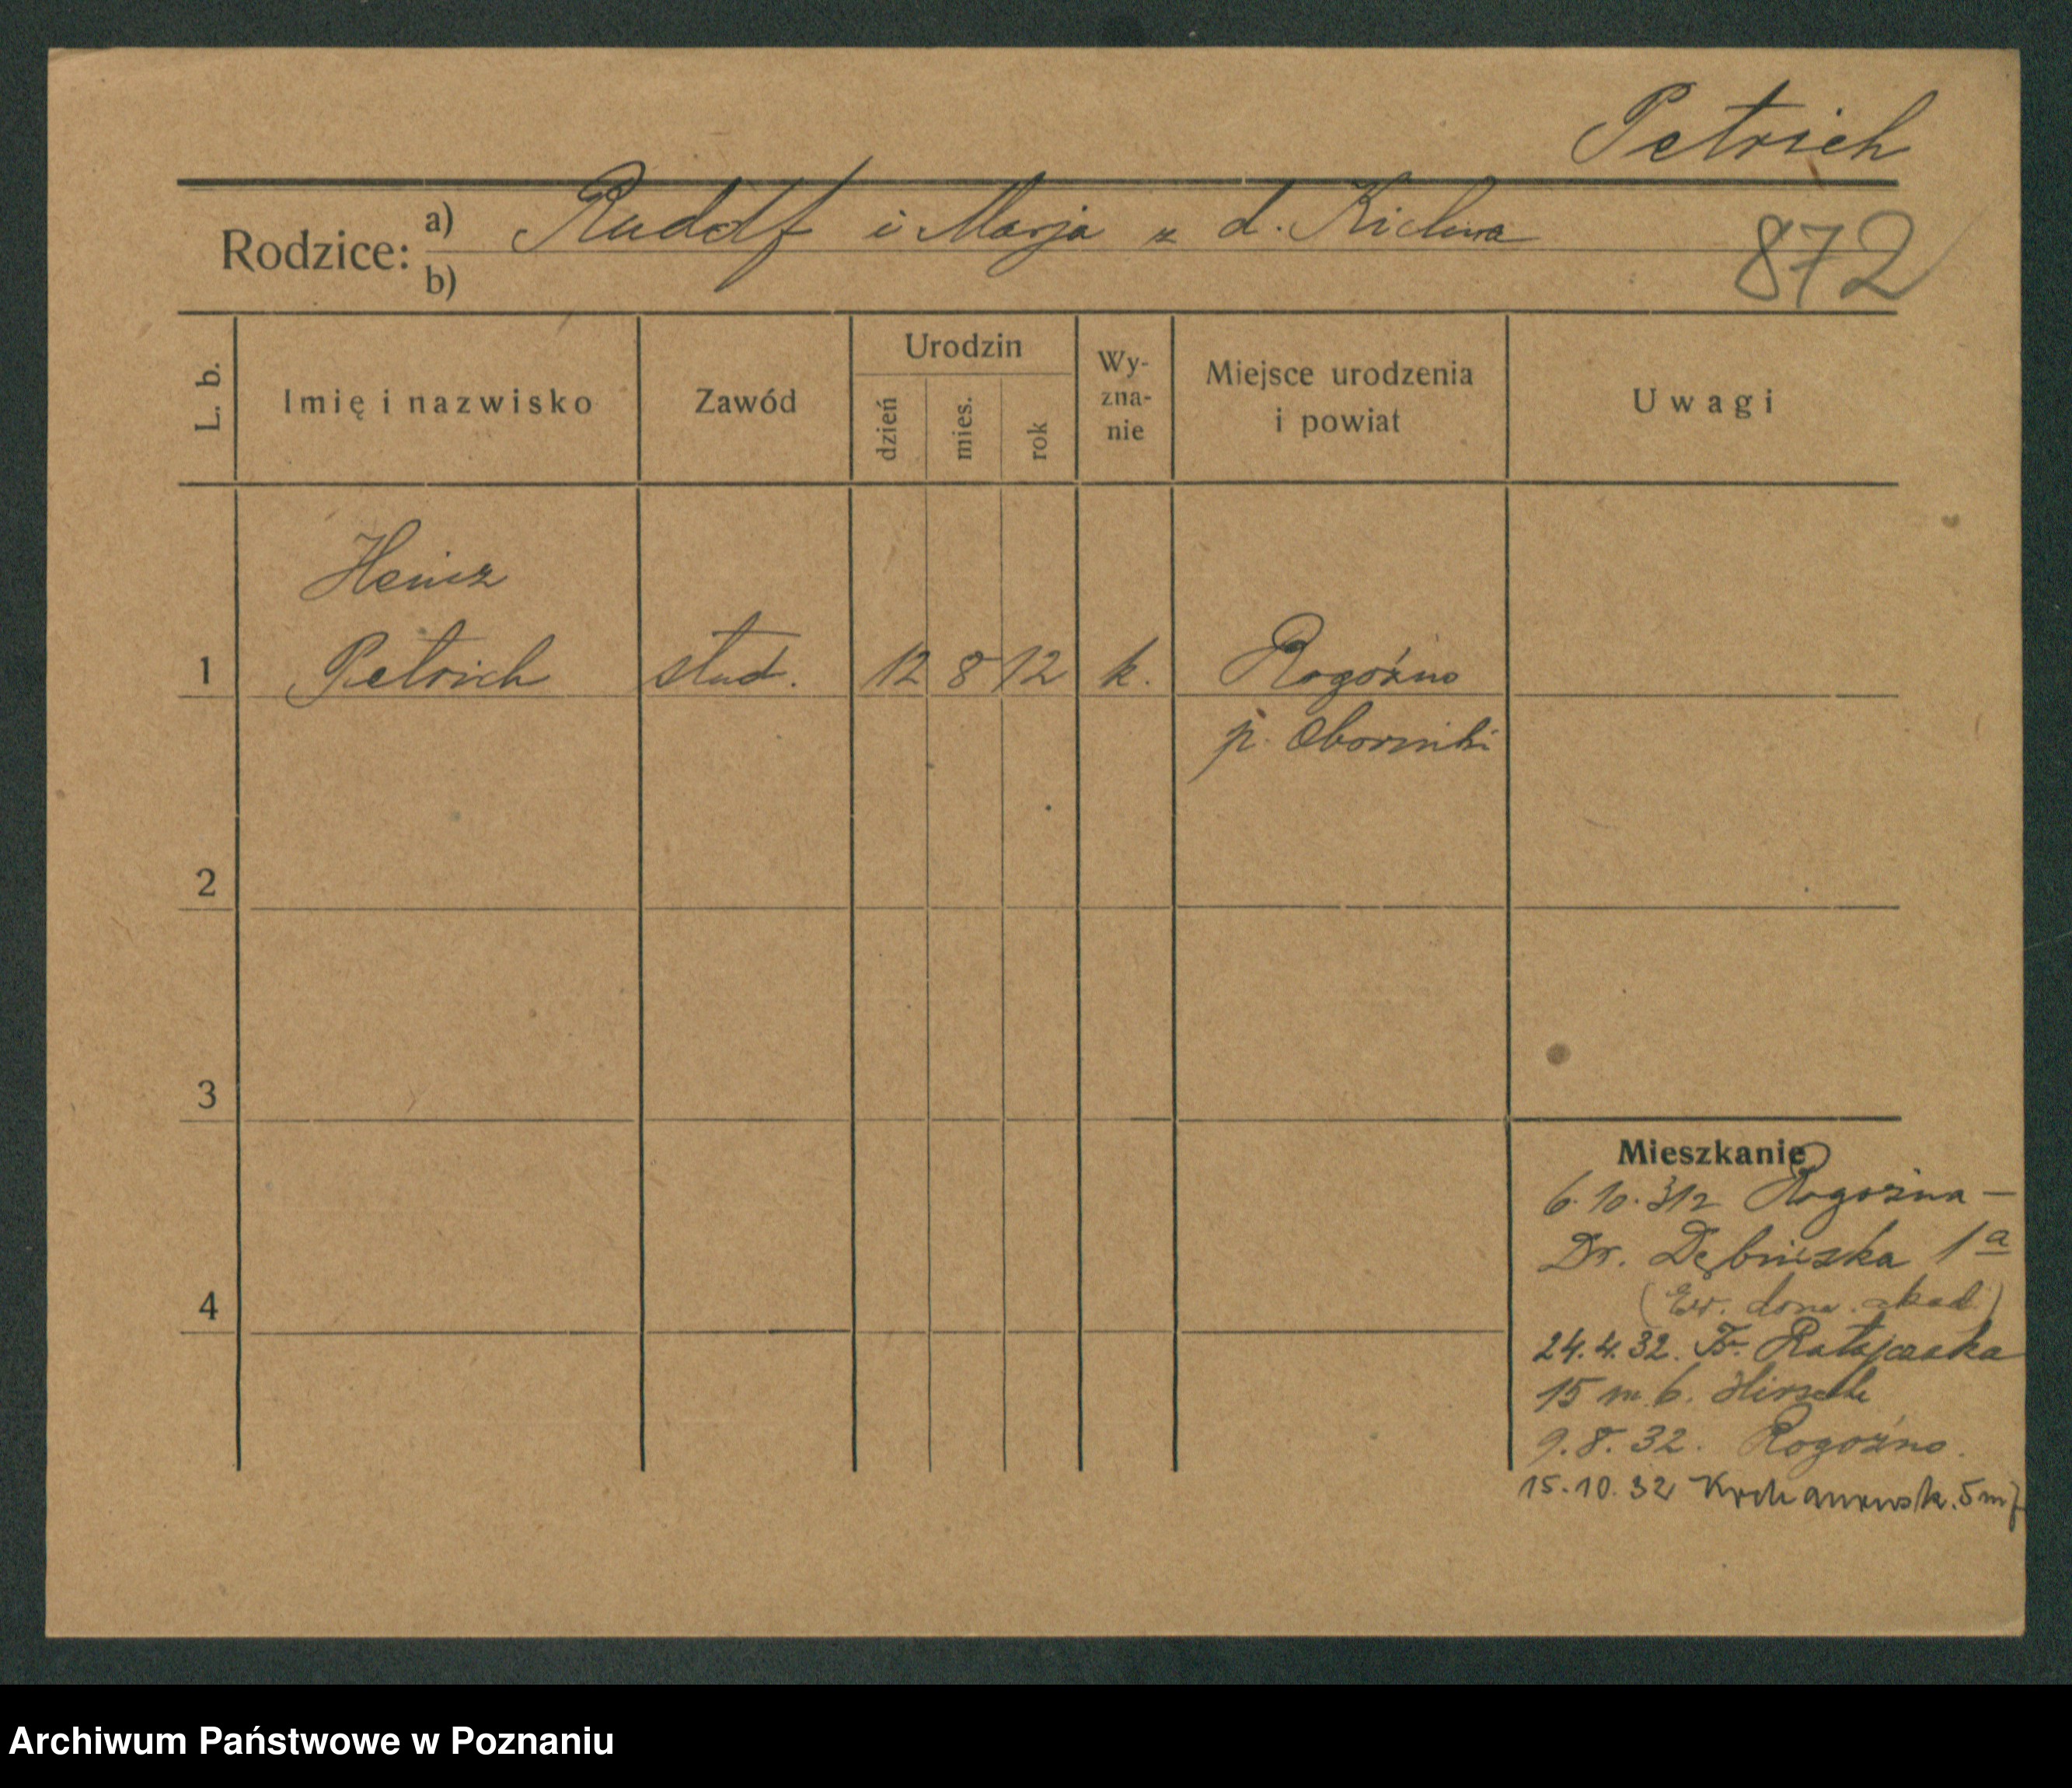 Petrich
Rodzice: a) Rudolf i Marja z d.
b)
872
L. b.
Imię i nazwisko
Zawód
Urodzin
dzień
mies.
rok
Wy-
zna-
nie
Miejsce urodzenia
i powiat
Uwagi
Heinz
1 Petrich stud. 12 8 12 k. Rogoźno
p. Oborniki
2
3
4
Mieszkanie
6.10. Rogoźna –
Dr. 1a
(Ew. dom. akad)
24.4.32. Fr. Ratajczaka
15 m. 6.
9.8.32. Rogoźno.
15.10.32 5 m 7
Archiwum Państwowe w Poznaniu